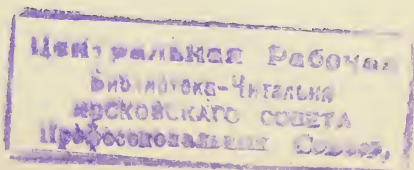 Центральная Рабочая
Библиотека-Читальня
МОСКОВСКАГО СОВЕТА
Профессиональных Союзов,